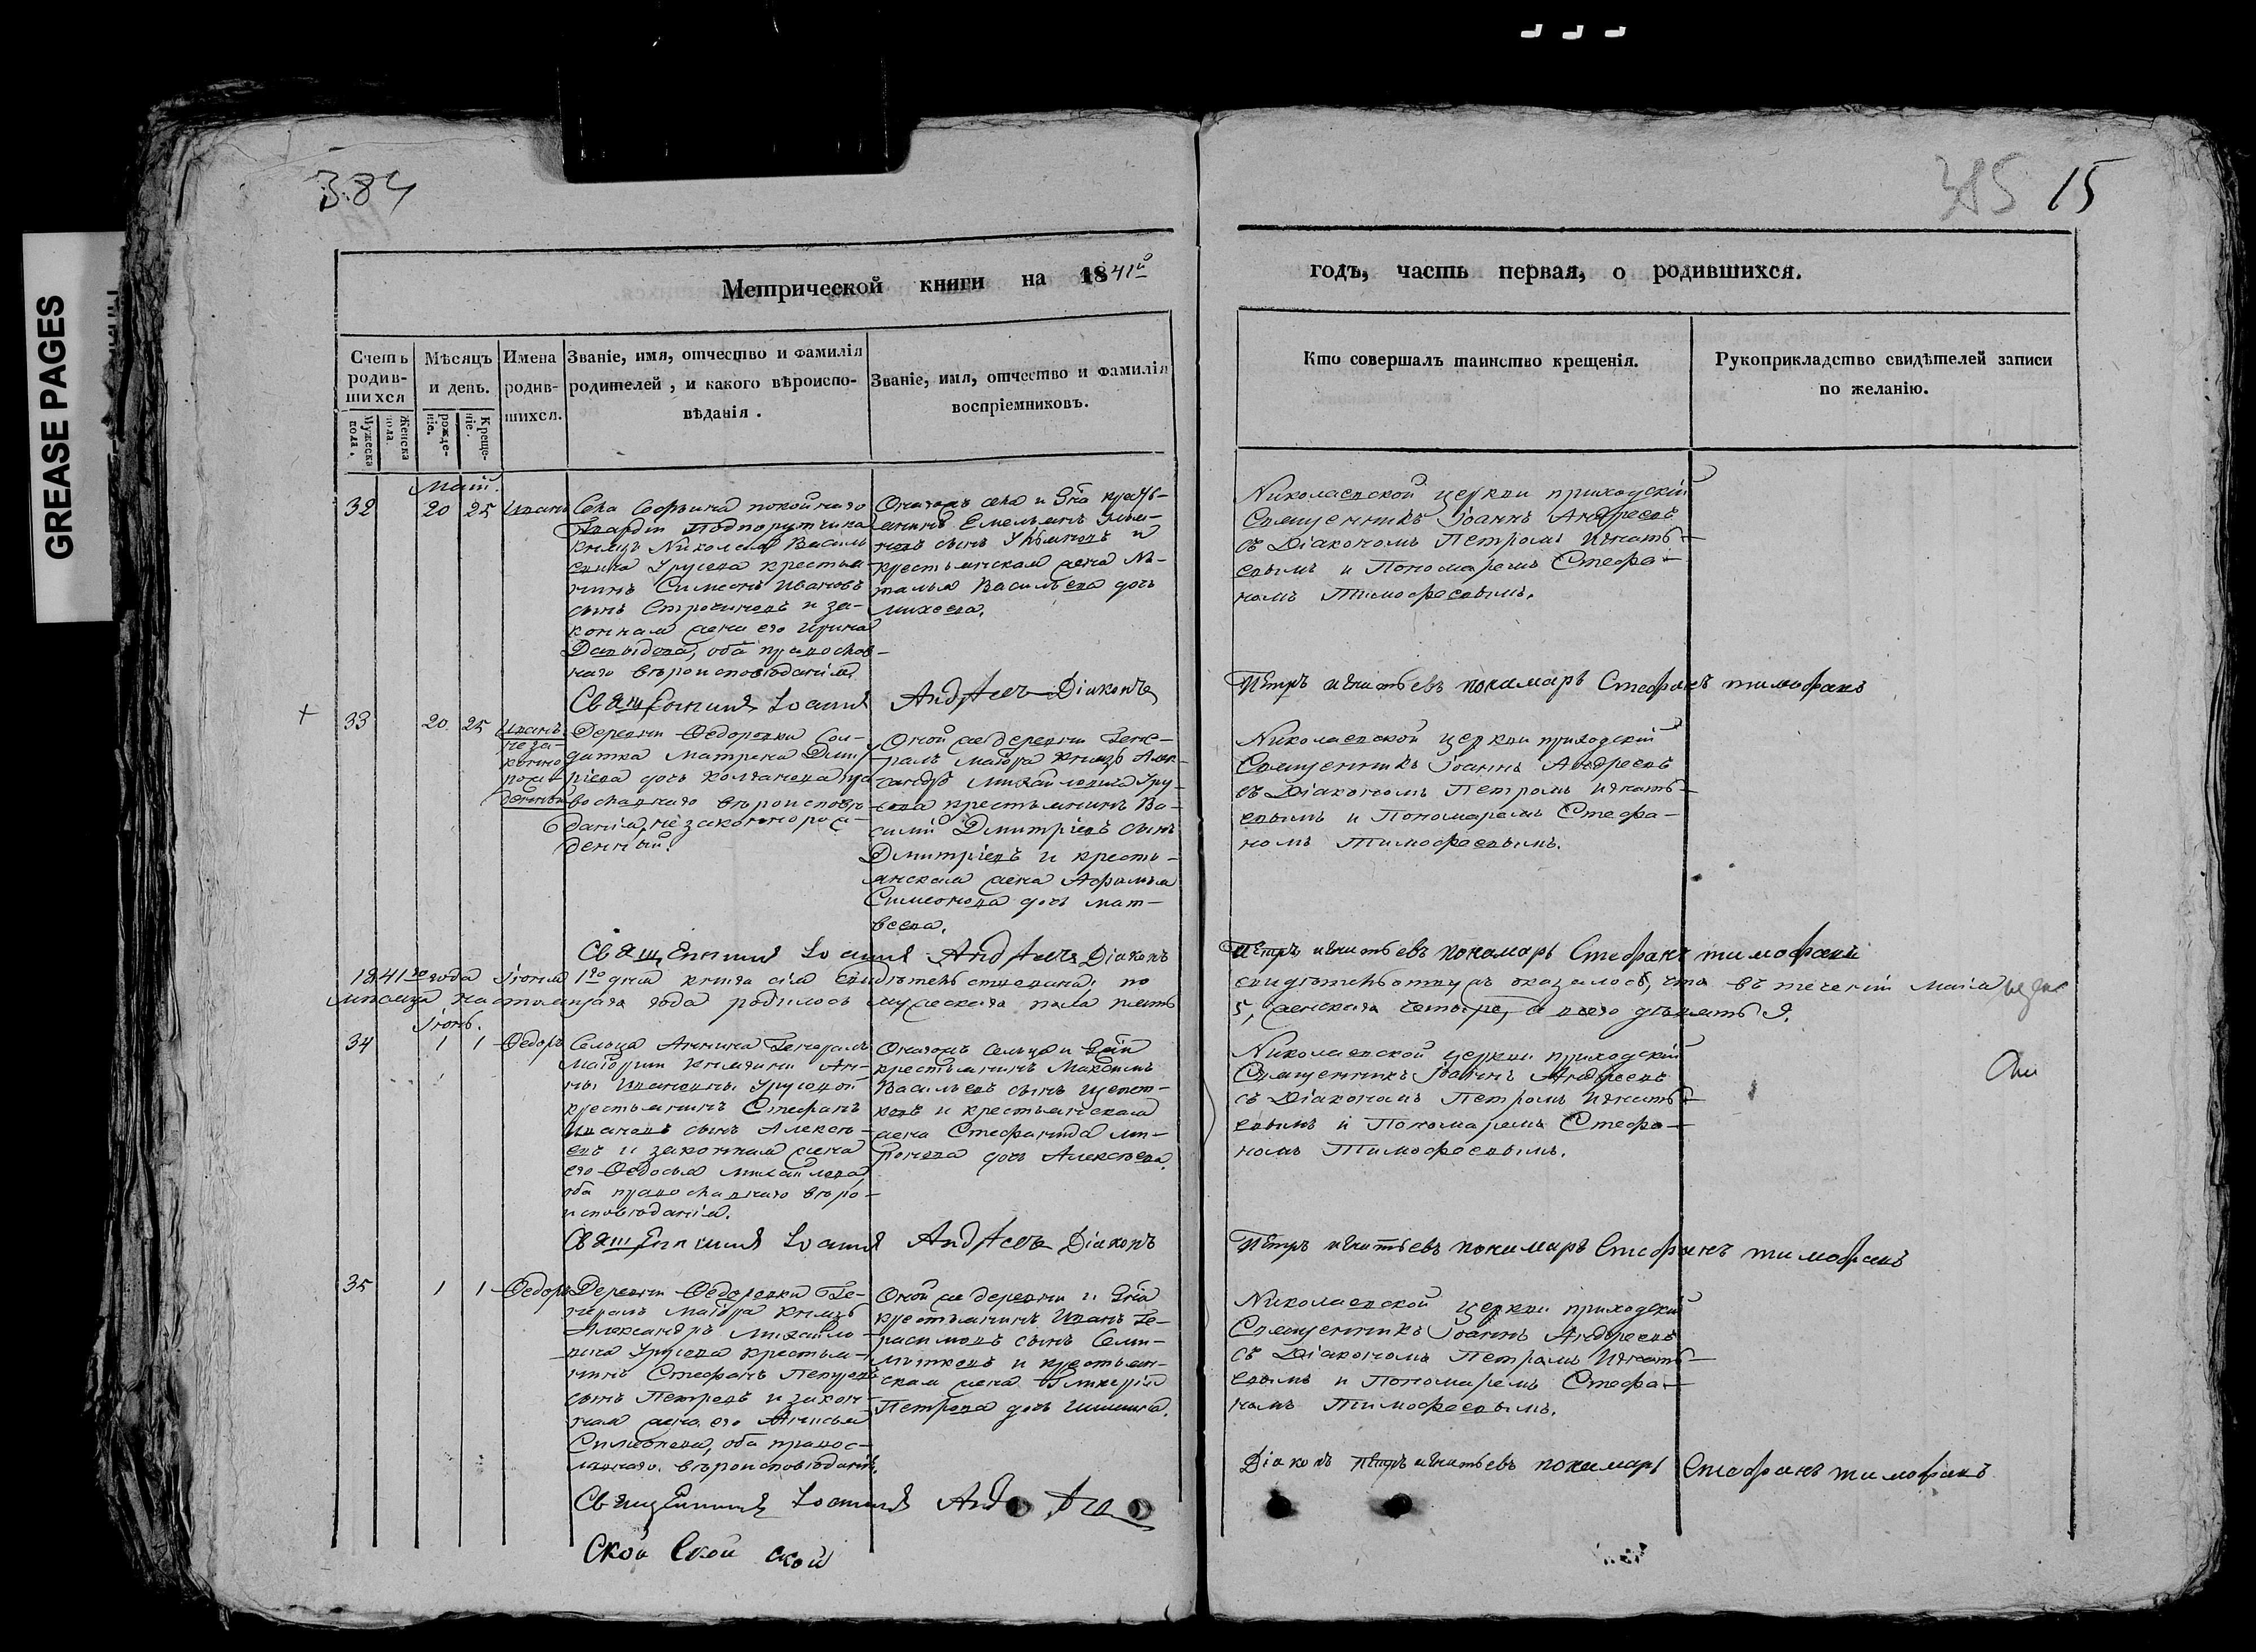 GREASE PAGES
384
315 15
Метрической книги на 1841й
годъ, часть первая, о родившихся.
Счетъ родив-шихся
Мужеска пола.
Женска пола.
Мѣсяцъ и день.
рожде-ніе.
Креще-ніе.
Имена родив-шихся.
Званіе, имя, отчество и фамилія родителей, и какого вѣроиспо-вѣданія.
Званіе, имя, отчество и фамилія воспріемниковъ.
Кто совершалъ таинство крещенія.
Рукоприкладство свидѣтелей записи по желанію.
Маій.
32 20 25 Иванъ
Села Софьина покойнаго
Гвардіи Подпорутчика
князя Николая Василь
евича Урусова крестья-
нинъ Симеонъ Ивановъ
сынъ Строчиковъ и за-
конная жена его Ирина
Давыдова, оба православ-
наго вѣроисповѣданія
Онагожъ села и Гна кресть-
янинъ Емельянъ
сынъ и
крестьянская жена На-
талья Васильева дочь
Михеева.
Николаевской церкви приходскій
Священникъ Іоаннъ Андреевъ
съ Діакономъ Петромъ Игнатъ-
евымъ и Пономаремъ Стефа-
номъ Тимофеевымъ.
Священникъ Іоаннъ Андреевъ Діаконъ
Петръ Игнатьевъ пономарь Стефанъ тимофеевъ
33 20 25 Иванъ
неза-
конно
рож-
денный
Деревни Федоровки Сол-
датка Матрена Дмит
ріева дочь пра
вославнаго вѣроисповѣ-
данія, незаконнорож-
денный.
Оной же деревни Гене-
ралъ Маіора Князь Алек-
сандръ Михайловича Уру-
сова крестьянинъ Ва-
силій Дмитріевъ сынъ
Дмитріевъ и кресть-
янская жена Афимья
Симеонова дочь Мат-
веева.
Николаевской церкви приходскій
Священникъ Іоаннъ Андреевъ
съ Діакономъ Петромъ Игнатъ-
евымъ и Пономаремъ Стефа-
номъ Тимофеевымъ.
Священникъ Іоаннъ Андреевъ Діаконъ
Петръ игнатьевъ пономарь Стефанъ тимофеевъ
1841го года Іюня 1го дня книга сія свидѣтельствована, по
свидѣтельству оказалось, что въ теченіи Маія
мѣсяца настоящаго года родилось мужеска пола пять
5, женска четыре, а всего девять 9.
Іюнь.
34 1 1 Федоръ
Сельца Аннина Генералъ
Маіорши Княгини Ан-
ны Ивановны Урусовой
крестьянинъ Стефанъ
Ивановъ сынъ Алексѣ-
евъ и законная жена
его Федосья Михайлова,
оба православнаго вѣро-
исповѣданія.
Онагожъ Сельца и Гжи
крестьянинъ Максимъ
Васильевъ сынъ Щепот-
ковъ и крестьянская
жена Стефанида Ми-
ронова дочь Алексѣева.
Николаевской церкви приходскій
Священникъ Іоаннъ Андреевъ
съ Діакономъ Петромъ Игнатъ-
евымъ и Пономаремъ Стефа-
номъ Тимофеевымъ.
Священникъ Іоаннъ Андреевъ Діаконъ
Петръ игнатьевъ пономарь Стефанъ тимофеевъ
35 1 1 Федоръ
Деревни Федоровки Ге-
нералъ Маіора Князь
Александръ Михайло-
вича Урусова крестья-
нинъ Стефанъ
сынъ Петровъ и закон-
ная жена его Анисья
Симеонова, оба правос-
лавнаго вѣроисповѣданія.
Оной же деревни и Гна
крестьянинъ Иванъ Ге-
расимовъ сынъ
и крестьян-
ская жена Гликерія
Петрова дочь
Николаевской церкви приходскій
Священникъ Іоаннъ Андреевъ
съ Діакономъ Петромъ Игнатъ-
евымъ и Пономаремъ Стефа-
номъ Тимофеевымъ.
Священникъ Іоаннъ
Діаконъ Петръ игнатьевъ пономарь Стефанъ тимофеевъ
Ской Ской ской